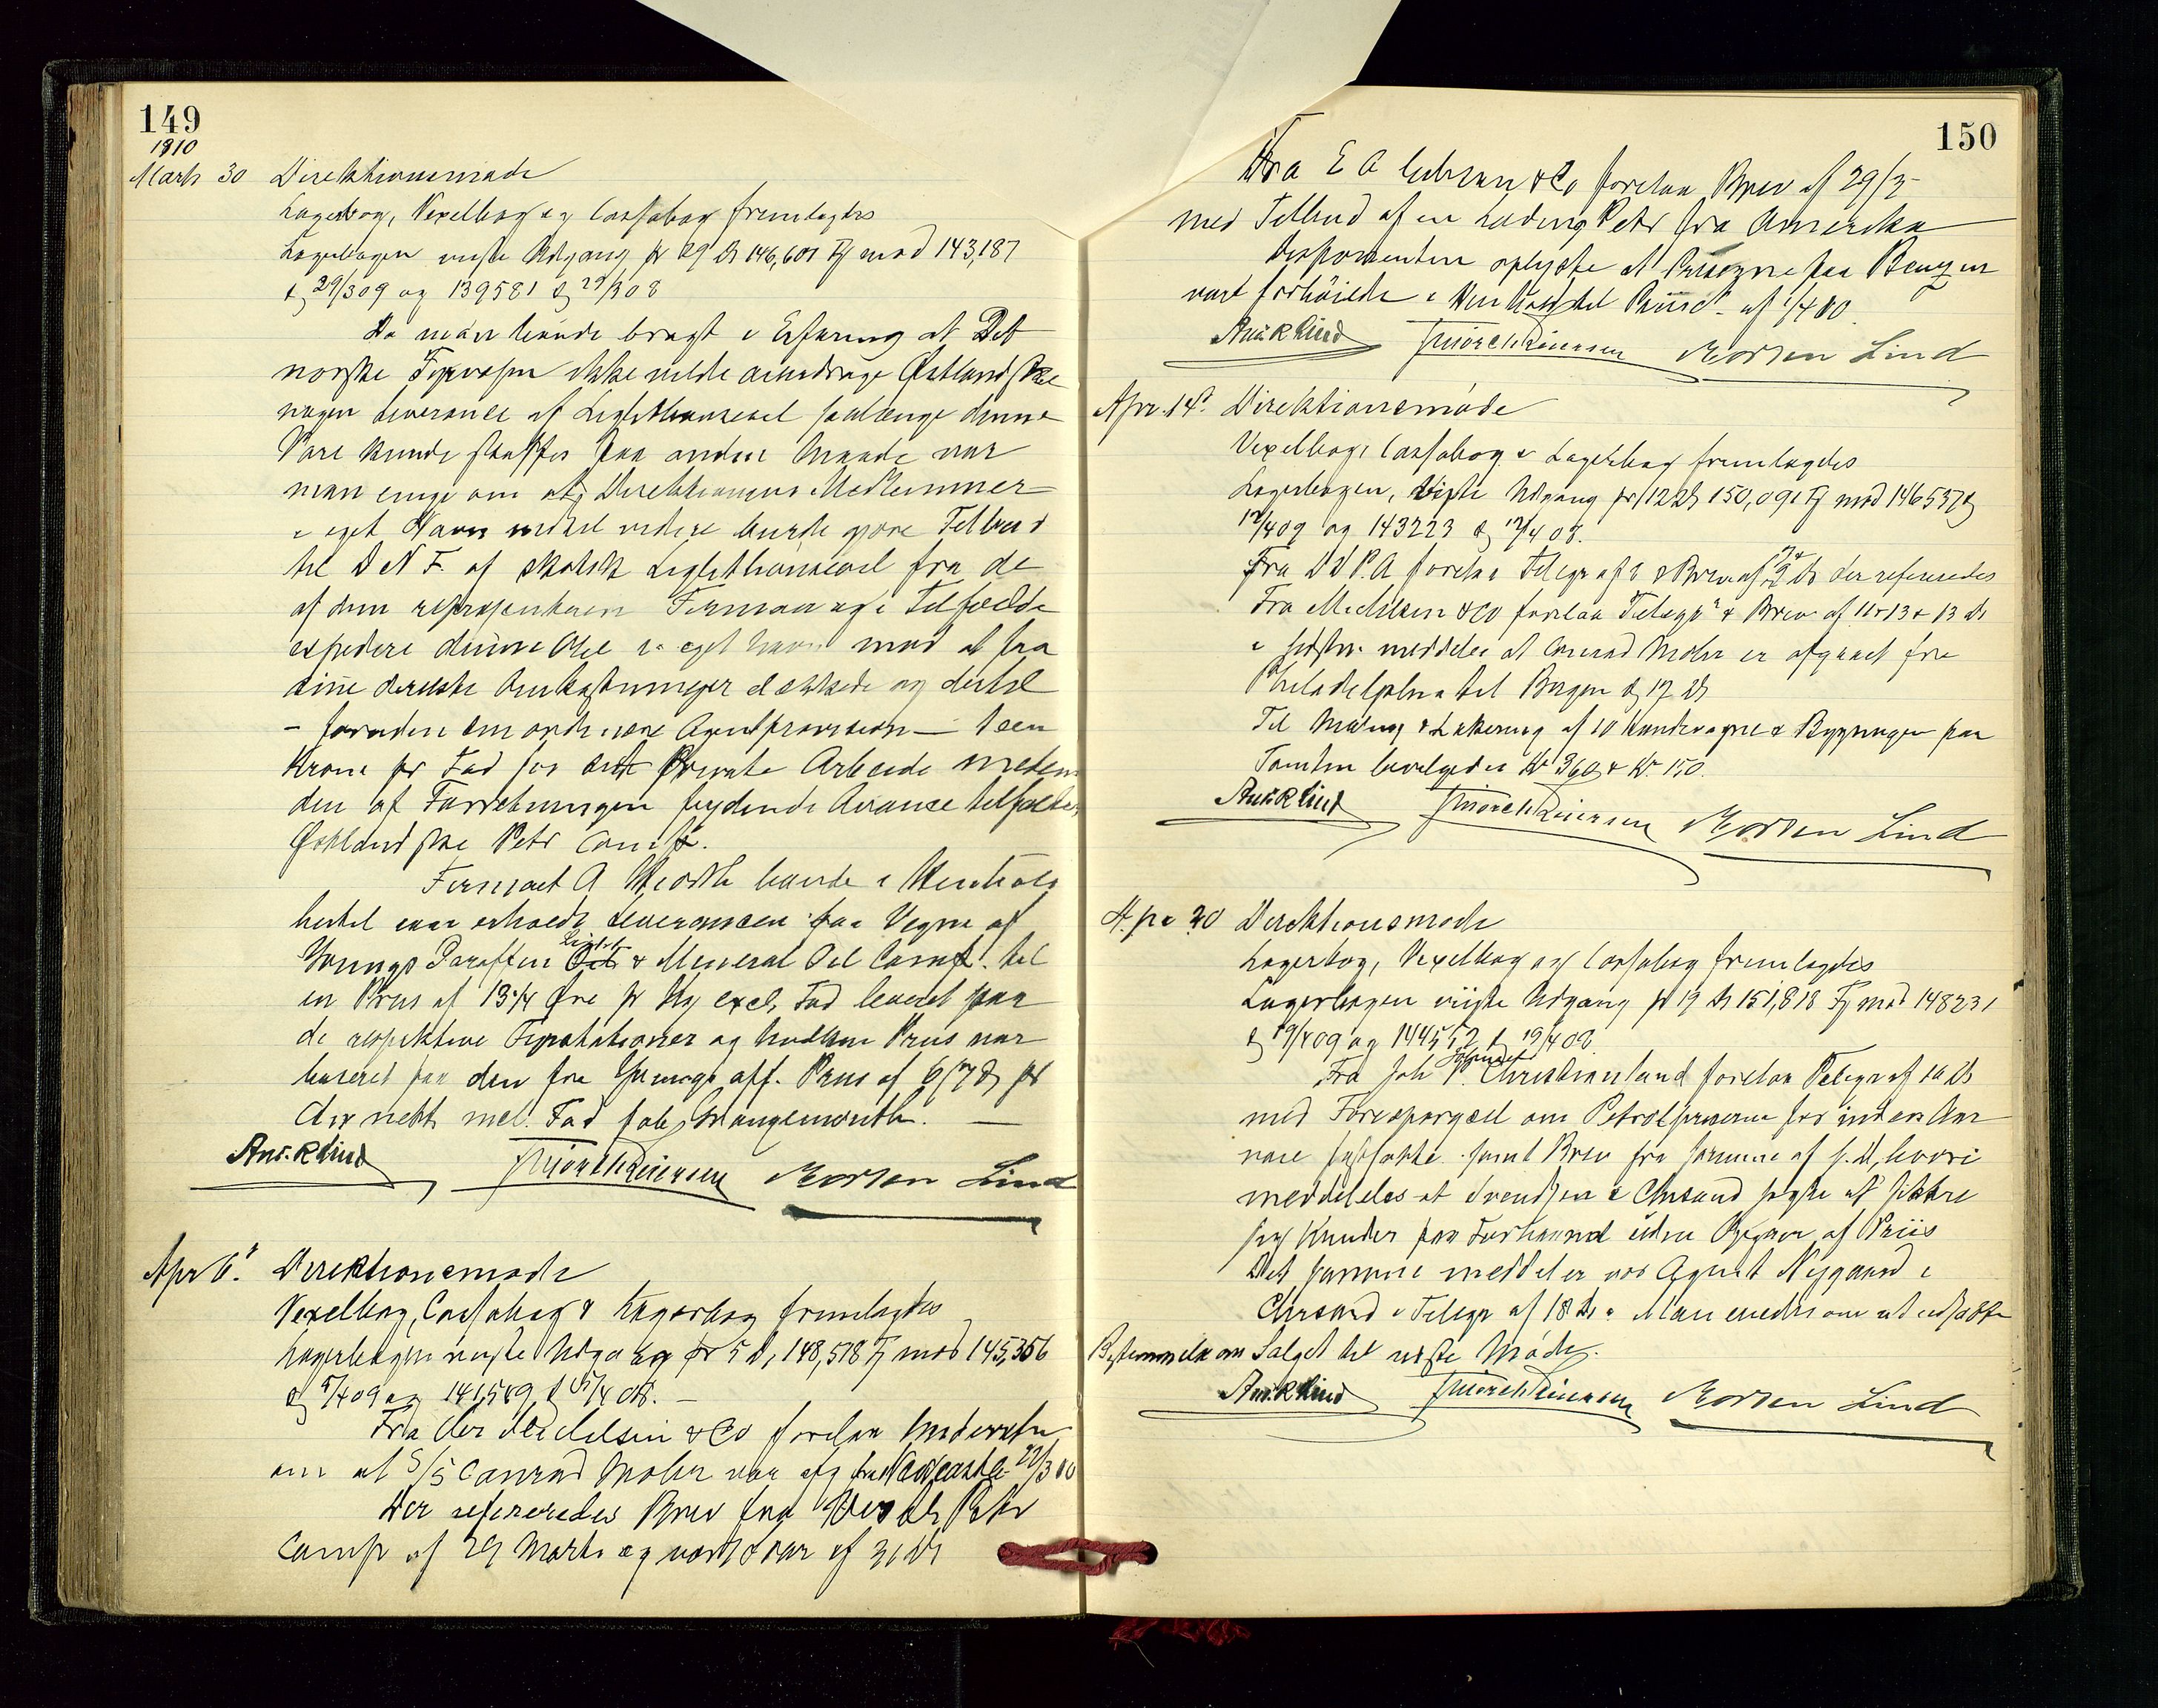 149
1910
Marts 30 Direktionsmøde
Lagerbog, Vexelbog og Cassabog fremlagdes
Lagerbogen viiste Udgang pr 29 ds 146,601 Fj mod 143,187
d 29/3 09 og 139581 d 29/3 08
Da man havde bragt i Erfaring at Det
norske Fyrvæsen ikke vilde anedrage Østlandske
nogen Leverance af Lighthouseoil saalænge denne
Vare kunde skaffes paa anden Maade var
man enige om at Direktionens Medlemmer
i eget Navn indtil videre burde gjøre Tilbud
til D N F. af skotsk Lighthouseoil fra de
af dem repræsenterede Firmaer og i Tilfælde
expedere denne Olie i eget Navn mod at faa
sine direkte Omkostninger dækkede og dertil
- foruden den ordinære Agentprovision - 1 een
Krone pr Fad for sit private Arbeide medens
den af Forretningen flydende Avance tilfalder
Østlandske Petr Comp.
Firmaet A Hiorth havde i Henhold
hertil erholdt Leverancen paa Vegne af
Youngs Paraffin Light & Mineral Oil Comp. til
en Priis af 13 1/4 Øre pr Kg excl. Fad leveret paa
de respektive Fyrstationer og hvilken Priis var
baseret paa den fra Youngs opg. Priis af 6/7 d pr
Cwt nett incl. Fad fob Grangemouth. —
Ant. R Lind Morten Lind
Apr 6. Direktionsmøde
Vexelbog, Cassabog & Lagerbog fremlagdes
Lagerbogen viiste Udgang pr 5 ds 148,518 Fj mod 145,356
d 5/4 09 og 141,549 d 5/4 08. —
Fra Chr Michelsen & Co forelaa Underretn
om at S/S Conrad Mohr var afg fra Newcastle 22/3 10
Der refereredes Brev fra Petr
Comp af 29 Marts og vort Svar af 31 ds
150
Fra E A & Co forelaa Brev af 29/3
med Tilbud af en Ladning Petr fra Amerika
Disponenten oplyste at Priserne paa Benzin
vare forhøiede i Henhold til af 1/4 10.
Ant. R Lind Morten Lind
Apr. 14. Direktionsmøde
Vexelbog, Cassabog & Lagerbog fremlagdes
Lagerbogen, viste Udgang pr 12 ds 150,091 Fj mod 146537 d
12/4 09 og 143223 d 12/4 08.
Fra D D P. A forelaa Telegr af & Brev af ds der refereredes
Fra Michelsen & Co forelaa Telegr & Brev af 11 13 & 13 ds
i sidste meddeles at Conrad Mohr er afgaaet fra
Philadelphia til Bergen d 17 ds
Til Maling & Lakering af 10 Kundevogne & Bygningen paa
Tomten bevilgedes Kr 360 & Kr. 150.
Ant. R Lind Morten Lind
Apr 20 Direktionsmøde
Lagerbog, Vexelbog og Cassabog fremlagdes
Lagerbogen viiste Udgang pr 19 ds 151,818 Fj mod 148231
d 19/4 09 og 144552 d 19/4 08
Fra Joh P. Christianssand forelaa Telegr af 16 ds
med Forespørgsel om Petrolpriserne for inden Aar
vare fastsatte samt Brev fra samme af s. D, hvori
meddeltes at Svendsen i Chrsand søgte at sikre
sig Kunder paa Forhaand uden Opgave af Priis
Det samme meddeler vor Agent Nygaard i
Chrsand i Telegr af 18 ds. Man enedes om at udsætte
Bestemmelse om Salget til næste Møde.
Ant. R Lind Morten Lind